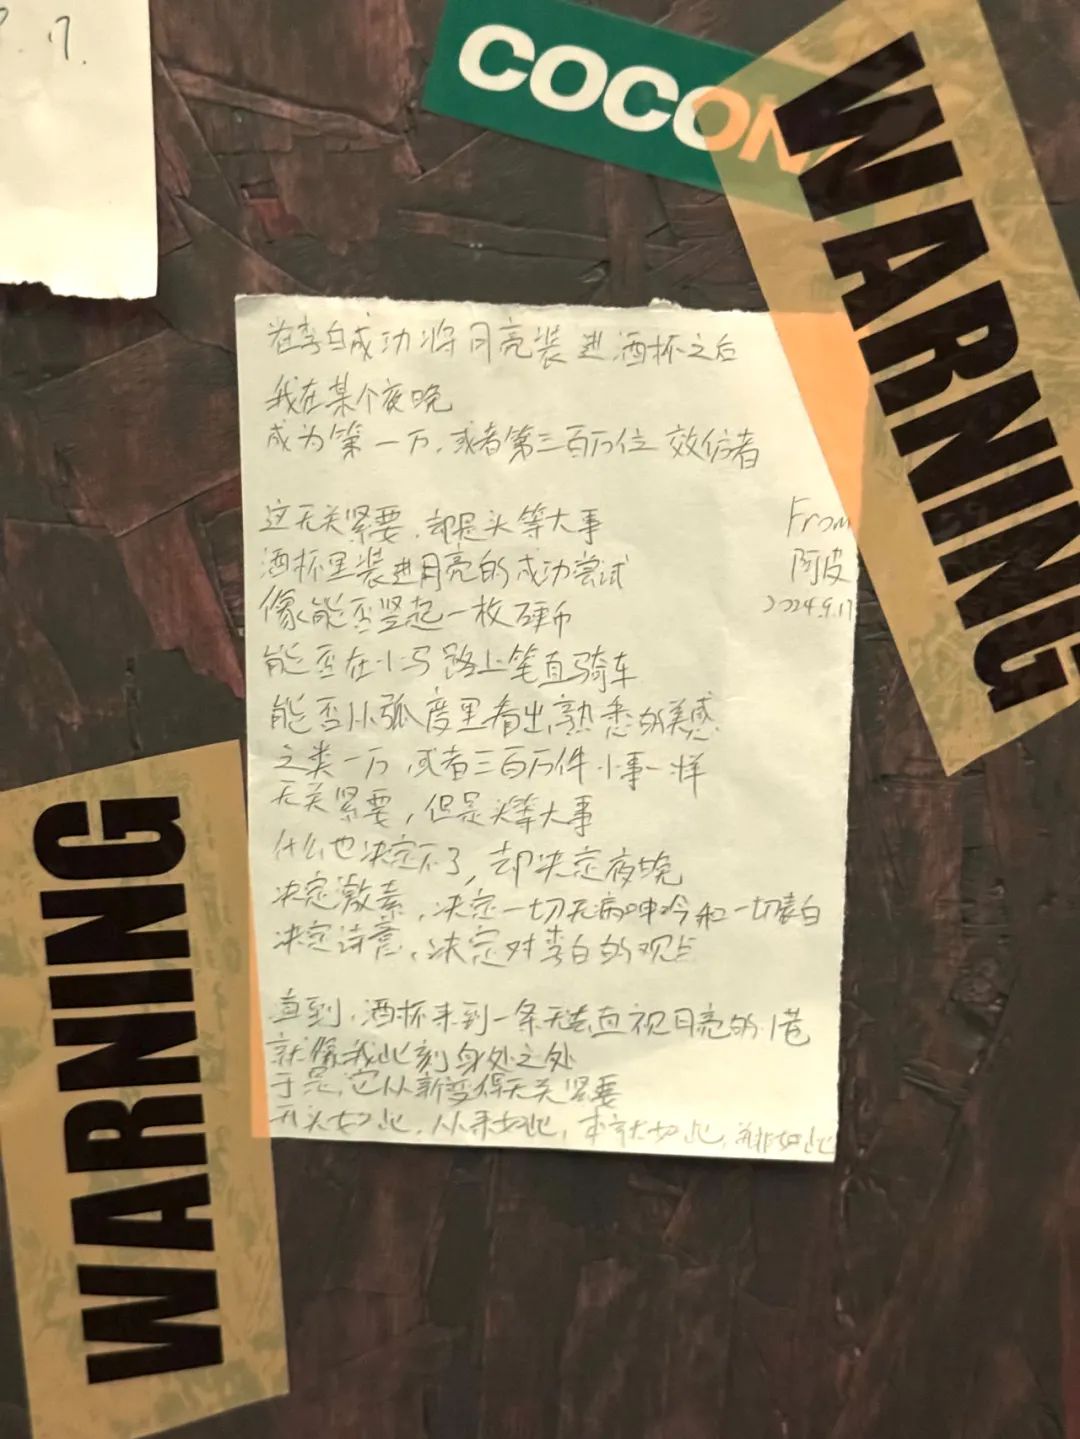 9.17.
COCON
WARNING
在李白成功将月亮装进酒杯之后
我在某个夜晚
成为第一万,或者第三百万位效仿者
这无关紧要,却是头等大事
酒杯里装进月亮的成功尝试
像能否竖起一枚硬币
能否在小马路上笔直骑车
能否从弧度里看出熟悉的美感
之类一万或者三百万件小事一样
无关紧要,但是头等大事
什么也决定不了,却决定夜晚
决定激素,决定一切无病呻吟和一切表白
决定诗意,决定对李白的观点
直到,酒杯来到一条无法直视月亮的小巷
就像我此刻身处之处
于是,它从新变得无关紧要
如此,从来如此,本就如此,并非如此
From
阿皮
2024.9.17
WARNING